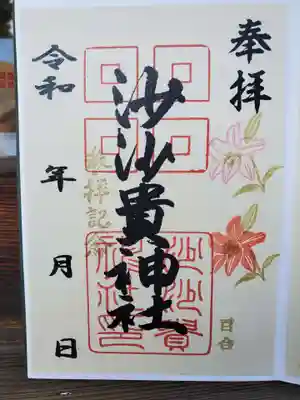 奉拝
沙沙貴神社
参拝記念
令和 年 月 日
百合
沙沙貴神社